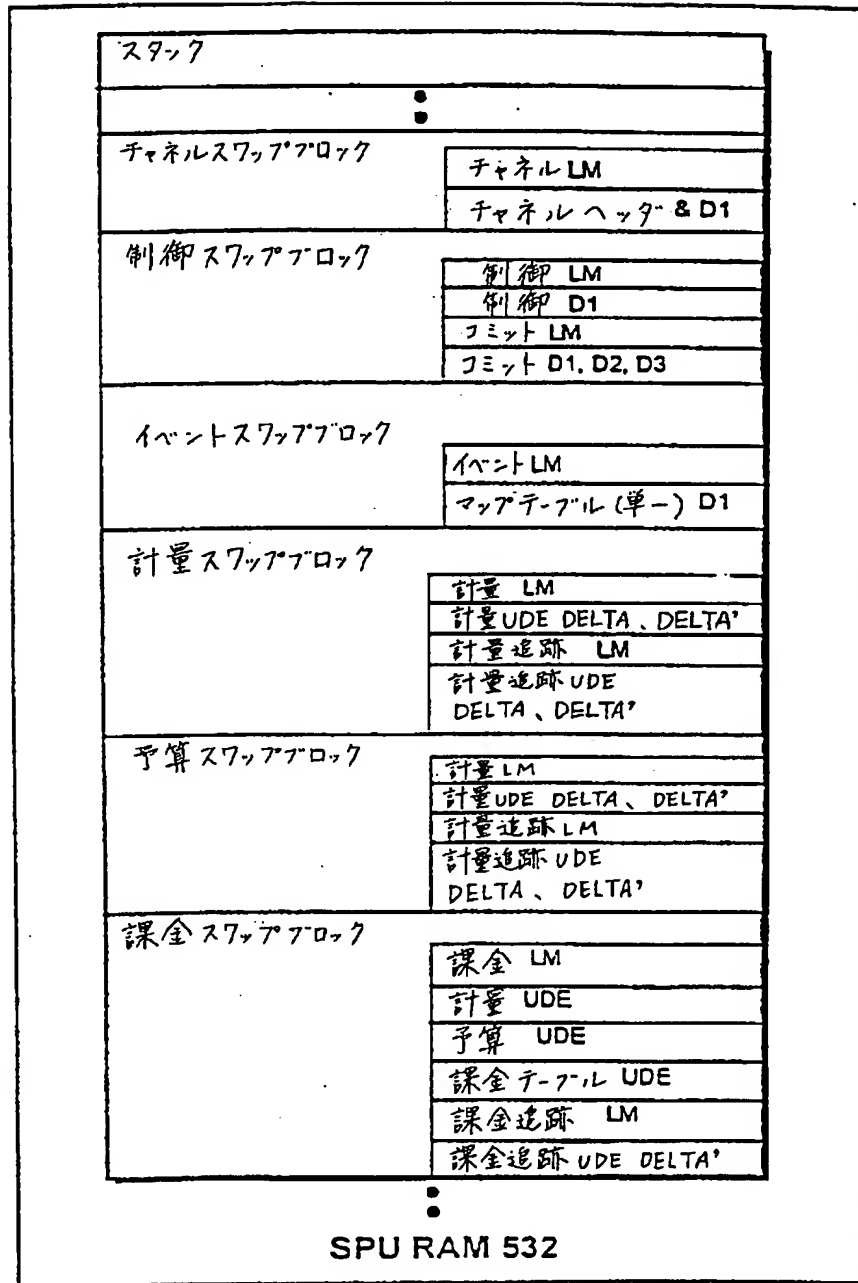 スタック
チャネルスワップブロック
チャネル LM
チャネルヘッダ & D1
制御スワップブロック
制御 LM
制御 D1
コミット LM
コミット D1, D2, D3
イベントスワップブロック
イベント LM
マップテーブル (単一) D1
計量スワップブロック
計量 LM
計量UDE DELTA、DELTA'
計量追跡 LM
計量追跡 UDE
DELTA、DELTA'
予算スワップブロック
計量LM
計量UDE DELTA、DELTA'
計量追跡LM
計量追跡 UDE
DELTA、DELTA'
課金スワップブロック
課金 LM
計量 UDE
予算 UDE
課金テーブル UDE
課金追跡 LM
課金追跡 UDE DELTA'
SPU RAM 532